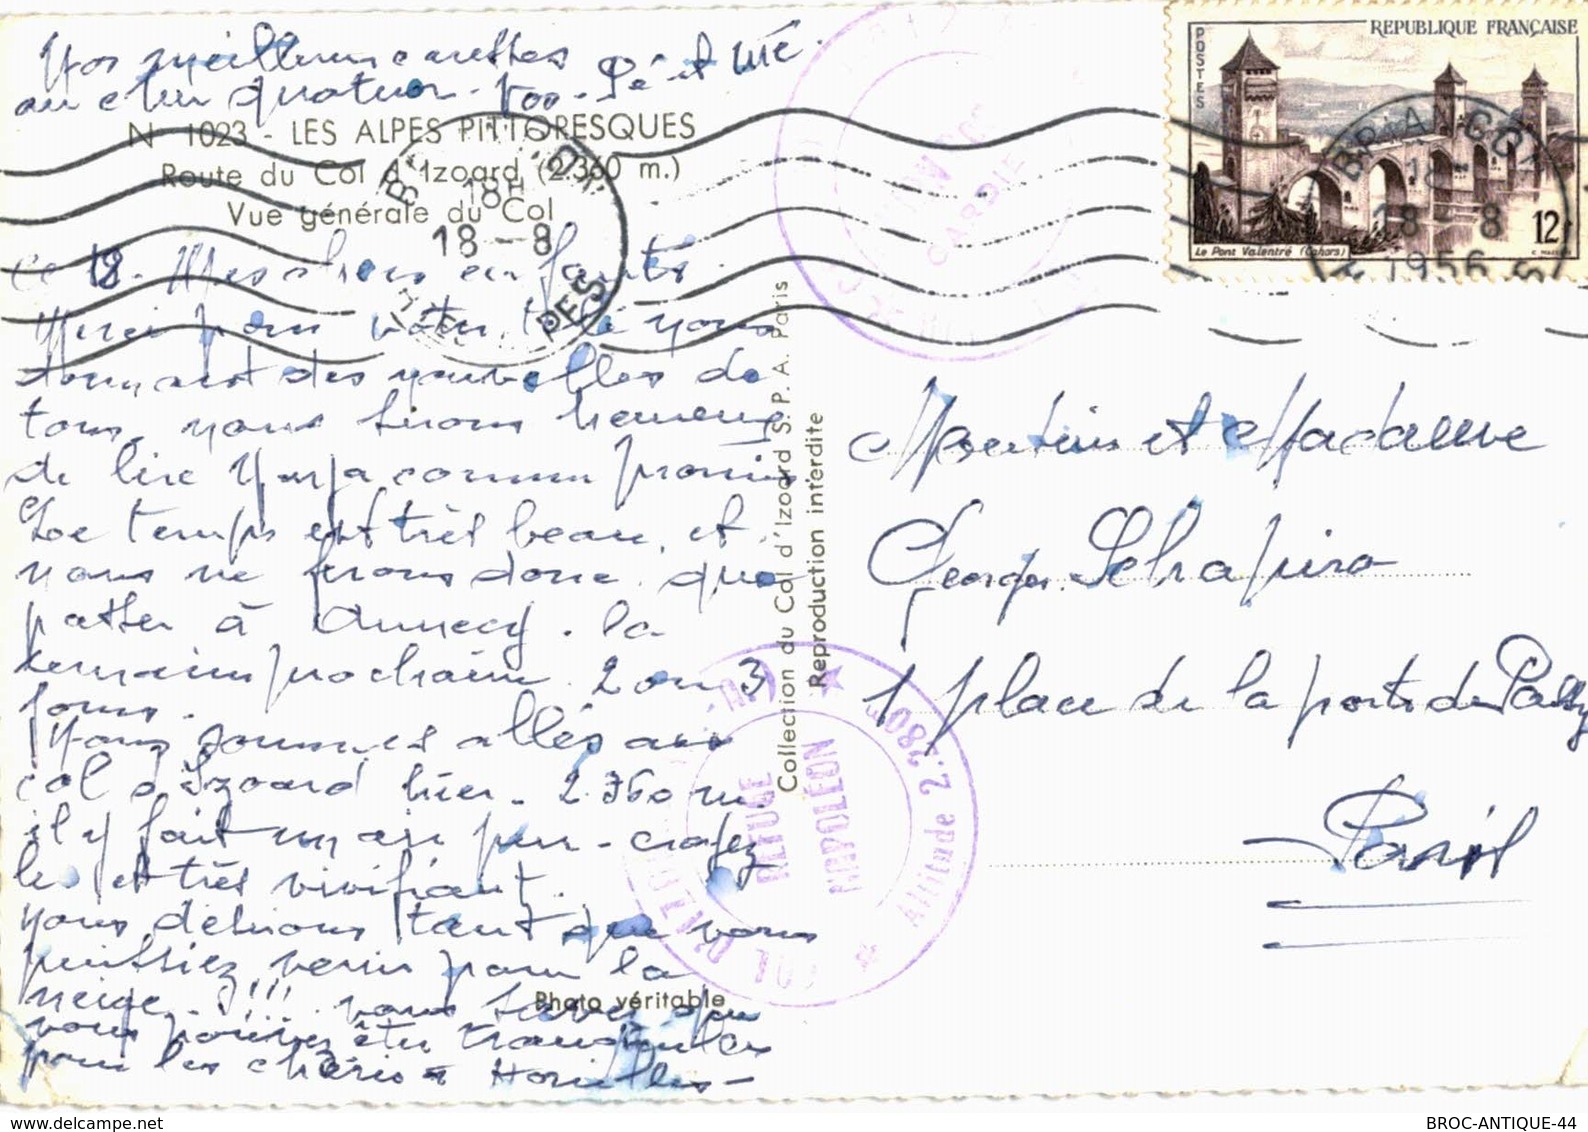 Nos meilleures caresses
au cher quatuor. Vos Pé et Mé.
N° 1023 - LES ALPES PITTORESQUES
Route du Col d'Izoard (2.360 m.)
Vue générale du Col
ce 18. Mes chers enfants.
Merci pour votre télé nous
donnant des nouvelles de
tous, nous serons heureux
de lire comme promis
Le temps est très beau, et
nous ne ferons donc que
passer à Annecy. la
semaine prochaine 2 ou 3
jours.
Nous sommes allés au
col d'Izoard hier. 2.360 m.
il y fait un air pur - croyez
le, et très vivifiant.
nous désirons tant que vous
puissiez venir pour la
neige. !!! vous savez que
vous pouvez être tranquilles
pour les chéris
Photo véritable
Collection du Col d'Izoard S. P. A. Paris
Reproduction interdite
REPUBLIQUE FRANÇAISE
POSTES
12F
Le Pont Valentré (Cahors)
BRIANCON
18H
18-8
1956
18H
18-8
COL D'IZOARD
REFUGE
NAPOLÉON
Altitude 2.280
Monsieur et Madame
Georges Schapiro
1 place de la porte de Passy
Paris
BROC-ANTIQUE-44
www.delcampe.net